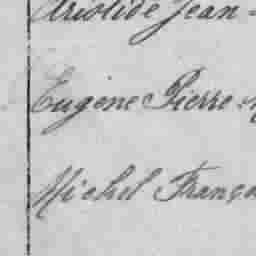 Aristide Jean-
Eugène Pierre
Michel Franço